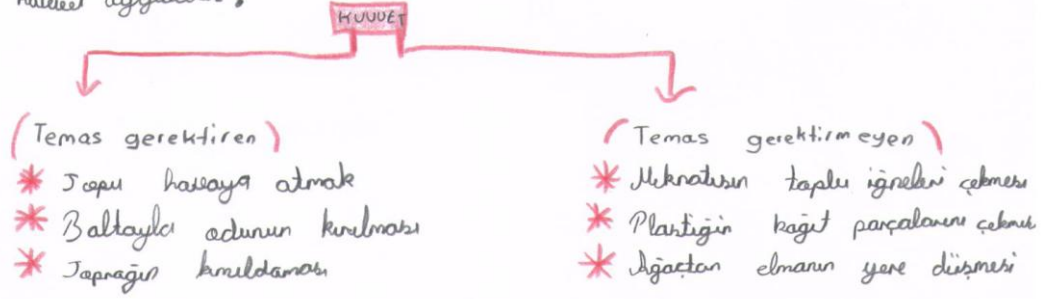 KUVVET
(Temas gerektiren)
* Topu havaya atmak
* Baltayla odunun kırılması
* Yaprağın kımıldaması
(Temas gerektirmeyen)
* Mıknatısın toplu iğneleri çekmesi
* Plastiğin kağıt parçalarını çekmesi
* Ağaçtan elmanın yere düşmesi